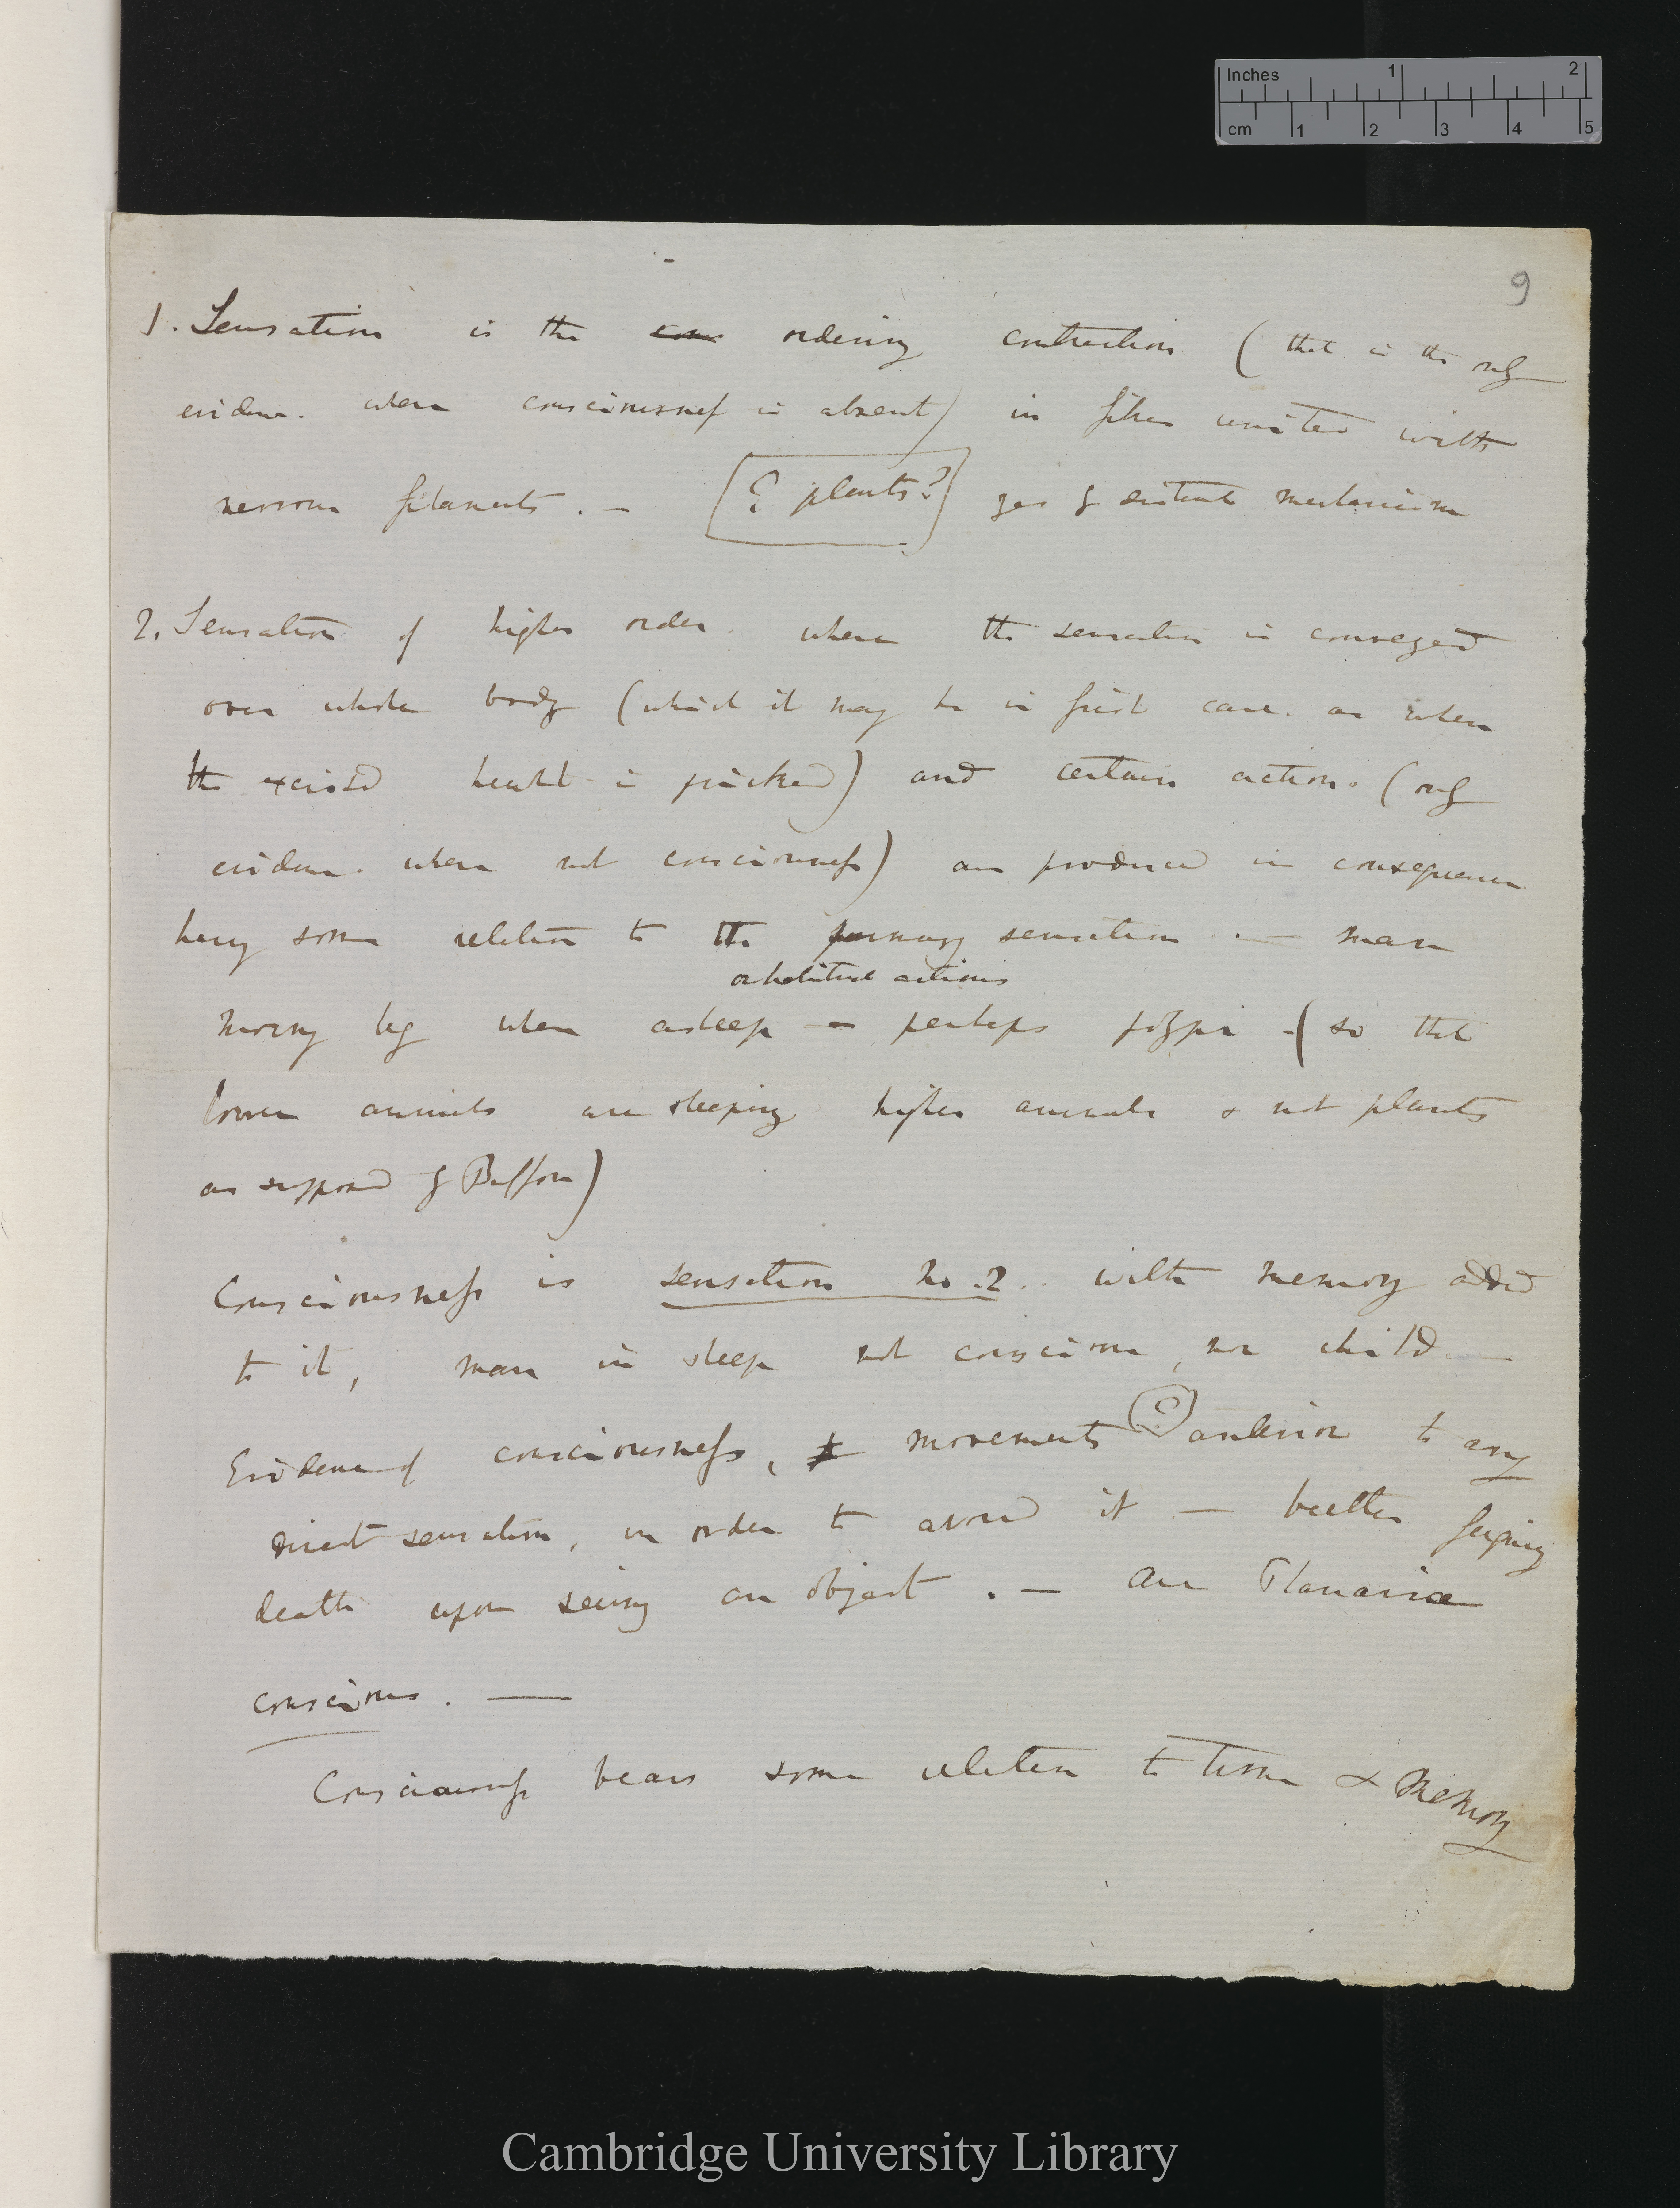 Inches 1 2
cm 1 2 3 4 5
9
1. Sensation is the ordering contraction (that is the only
evidence when consciousness is absent) in fibres united with
nervous filaments. — [? plants?] yes by mechanism
2. Sensation of higher order where the sensation is conveyed
over whole body (which it may be in first case. as when
the excised heart is pricked) and certain actions. (only
evidence when not consciousness) are produced in consequence
having some relation to the primary sensation. — man
or habitual actions
moving leg when asleep — perhaps polypi — (so that
lower animals are sleeping higher animals & not plants
as supposed by Buffon)
Consciousness is sensation No. 2. with memory added
to it, man in sleep not conscious, nor child —
Evidence of consciousness, movements (?) anterior to any
direct sensation, in order to avoid it — beetle feigning
death upon seeing an object. — are Planariae
conscious. —
Consciousness bears some relation to time & memory
Cambridge University Library